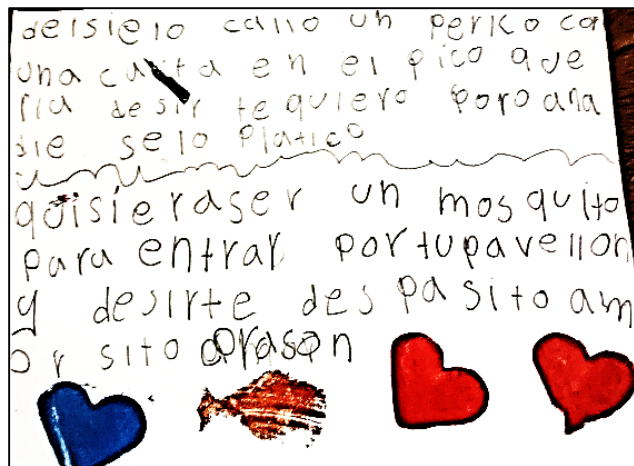 delsielo callo un perico con
una carta en el pico que
ria desir te quiero poro ana
die selo platico
quisieraser un mosquito
para entrar portupavellon
y desirte des pasito am
or sito